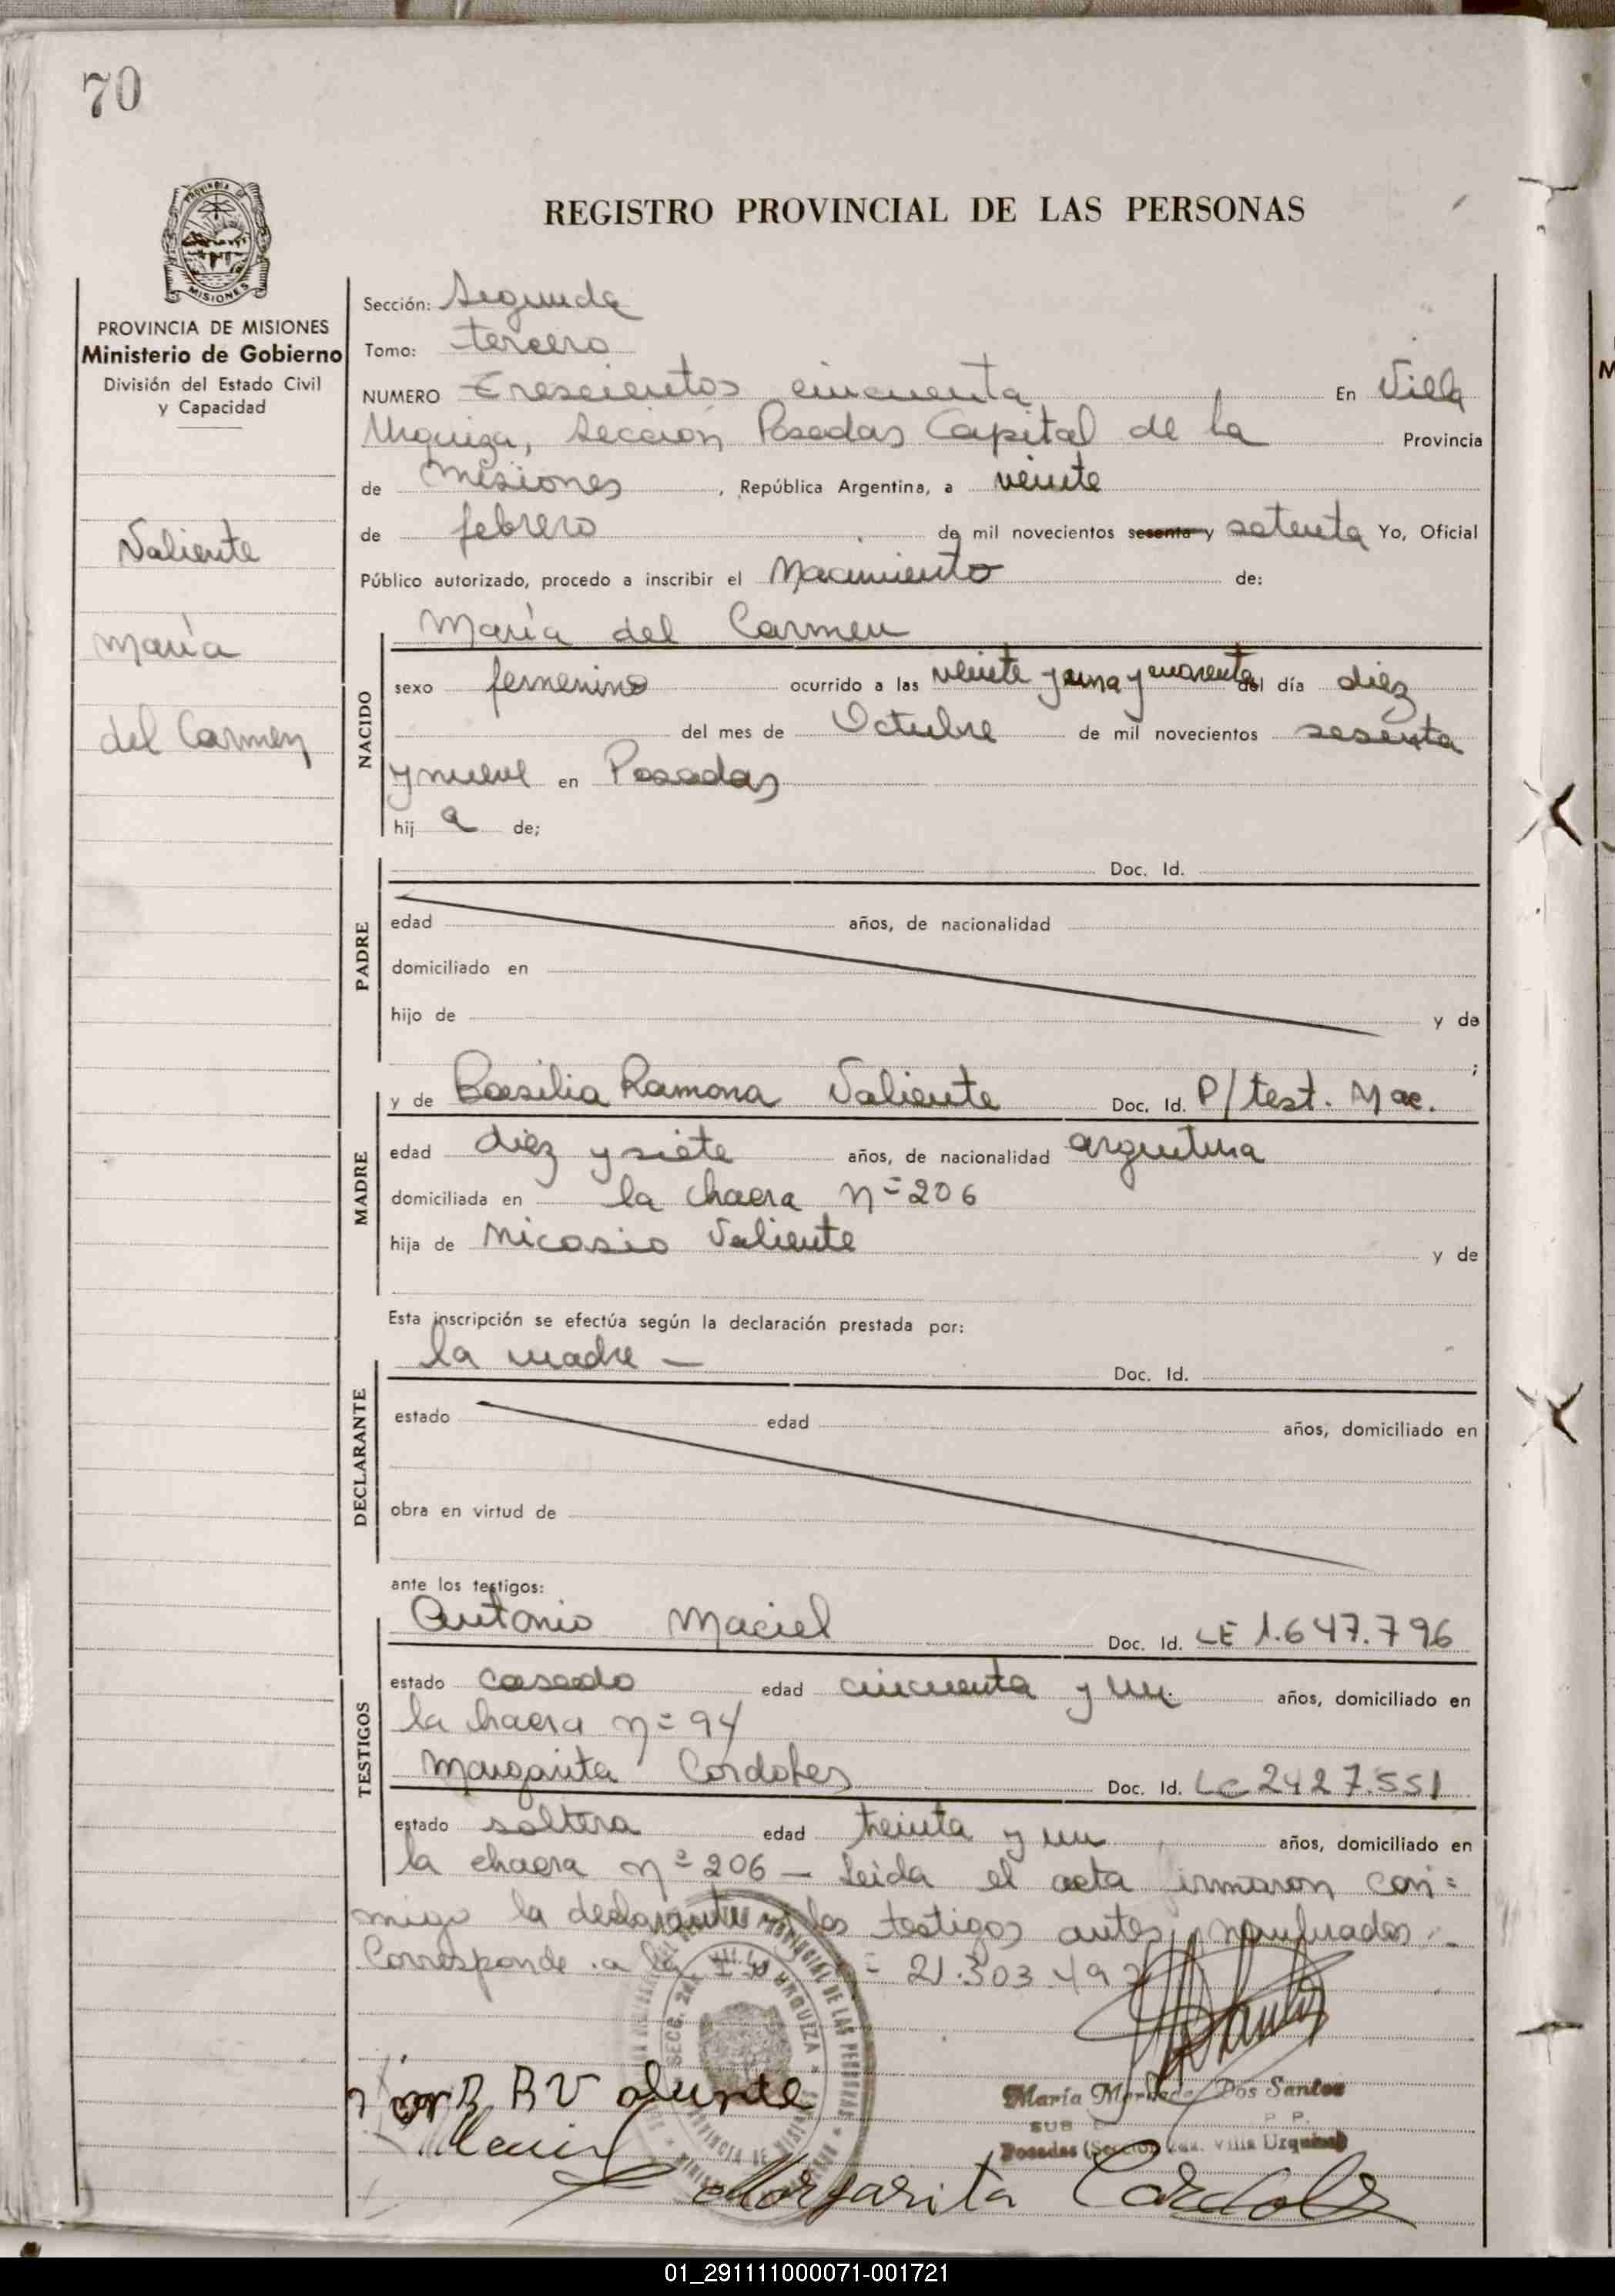 70
PROVINCIA DE MISIONES
REGISTRO PROVINCIAL DE LAS PERSONAS
PROVINCIA DE MISIONES
Ministerio de Gobierno
División del Estado Civil
y Capacidad
Valiente
María
del Carmen
Sección: Segunda
Tomo: tercero
NUMERO Trescientos cincuenta En Villa
Urquiza, Sección Posadas Capital de la Provincia
de Misiones , República Argentina, a veinte
de febrero de mil novecientos sesenta y setenta Yo, Oficial
Público autorizado, procedo a inscribir el Nacimiento de:
María del Carmen
NACIDO
sexo femenino ocurrido a las veinte y una y cuarenta del día diez
del mes de Octubre de mil novecientos sesenta
y nueve en Posadas
hij a de;
PADRE
Doc. Id.
edad años, de nacionalidad
domiciliado en
hijo de y de
;
MADRE
y de Basilia Ramona Valiente Doc. Id. P/test. Nac.
edad diez y siete años, de nacionalidad argentina
domiciliada en la chacra nº 206
hija de Nicasio Valiente y de
Esta inscripción se efectúa según la declaración prestada por:
DECLARANTE
la madre — Doc. Id.
estado edad años, domiciliado en
obra en virtud de
ante los testigos:
TESTIGOS
Antonio Maciel Doc. Id. LE 1.647.796
estado casado edad cincuenta y un años, domiciliado en
la chacra nº 94
Margarita Cordobes Doc. Id. LC 2427.551
estado soltera edad treinta y un años, domiciliado en
la chacra nº 206 — Leida el acta firmaron con=
migo la declarante y los testigos antes nombrados.-
Corresponde a la 21.303.497
SECC. 2da. VILLA URQUIZA
María Mercedes Dos Santos
SUB
Posadas (Sección 2da. Villa Urquiza)
Margarita Cordobes
01_291111000071-001721